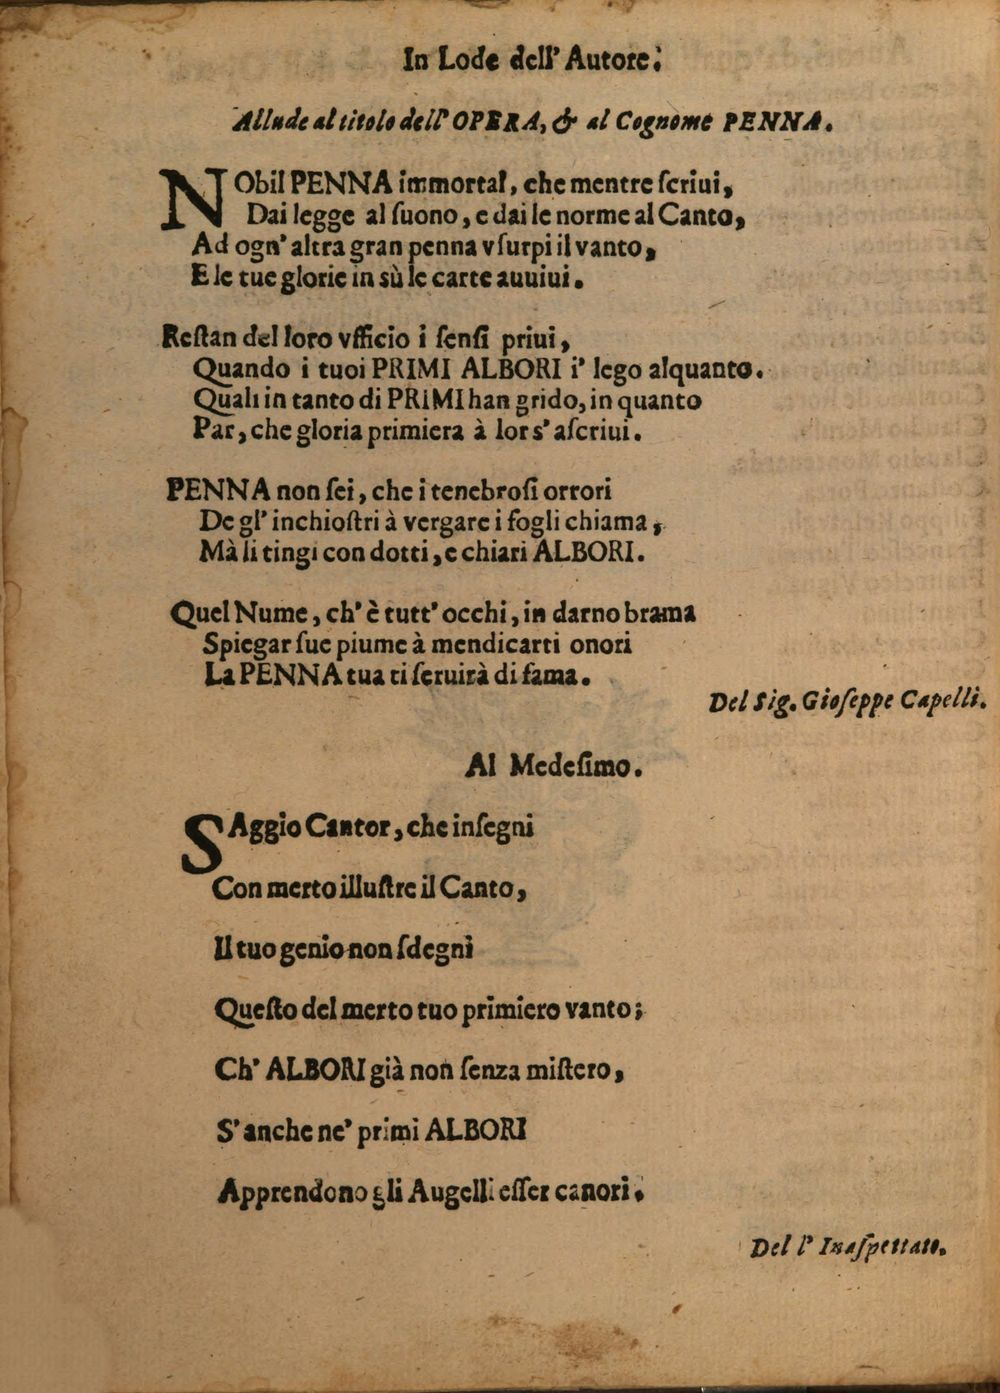 In Lode dell' Autore.
Allude al titolo dell' OPERA, & al Cognome PENNA.
NObil PENNA immortal, che mentre ſcriui,
Dai legge al ſuono, e dai le norme al Canto,
Ad ogn' altra gran penna vſurpi il vanto,
E le tue glorie in sù le carte auuiui.
Reſtan del loro vfficio i ſenſi priui,
Quando i tuoi PRIMI ALBORI i' lego alquanto.
Quali in tanto di PRiMI han grido, in quanto
Par, che gloria primiera à lor s' aſcriui.
PENNA non ſei, che i tenebroſi orrori
De gl' inchioſtri à vergare i fogli chiama,
Mà li tingi con dotti, e chiari ALBORI.
Quel Nume, ch' è tutt' occhi, in darno brama
Spiegar ſue piume à mendicarti onori
La PENNA tua ti ſeruirà di fama.
Del Sig. Gioſeppe Capelli.
Al Medeſimo.
SAggio Cantor, che inſegni
Con merto illuſtre il Canto,
Il tuo genio non ſdegni
Queſto del merto tuo primiero vanto;
Ch' ALBORI già non ſenza miſtero,
S' anche ne' primi ALBORI
Apprendono gli Augelli eſſer canori.
Del l' Inaſpettato.